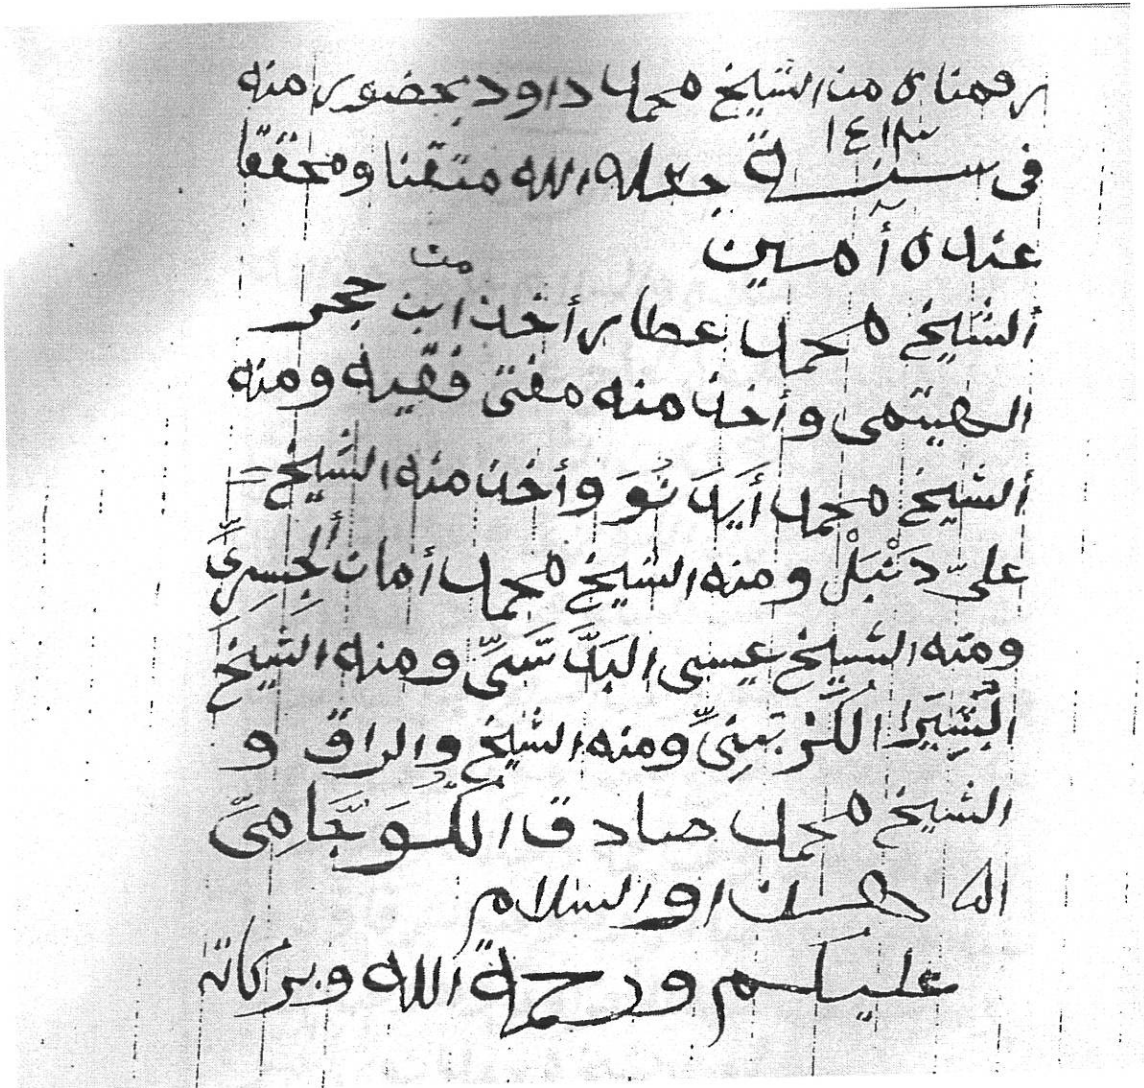 رقمناه من الشيخ محمد داود بحضور منه
في سنة ١٤١٣ جعله الله متقنا ومحققا
عنده آمسين
ألشيخ محمد عطار أخذ من ابن حجر
الهيتمى وأخذ منه مفتى فقيه ومنه
ألشيخ محمد أَيَدَ نُوَ وأخذ منه الشيخ =
علىّ دَنْبَلْ ومنه الشيخ محمد أمان ألجِسِرِىِّ
ومنه الشيخ عيسى البَدَّ سَّىِّ ومنه الشيخ
البُشِيرَ الكَبَرْتِنِىِّ ومنه الشيخ والراق و
الشيخ محمد صادق الكُوَجَّامِىِّ
اله هكذا والسلام
عليكم ورحمة الله وبركاته